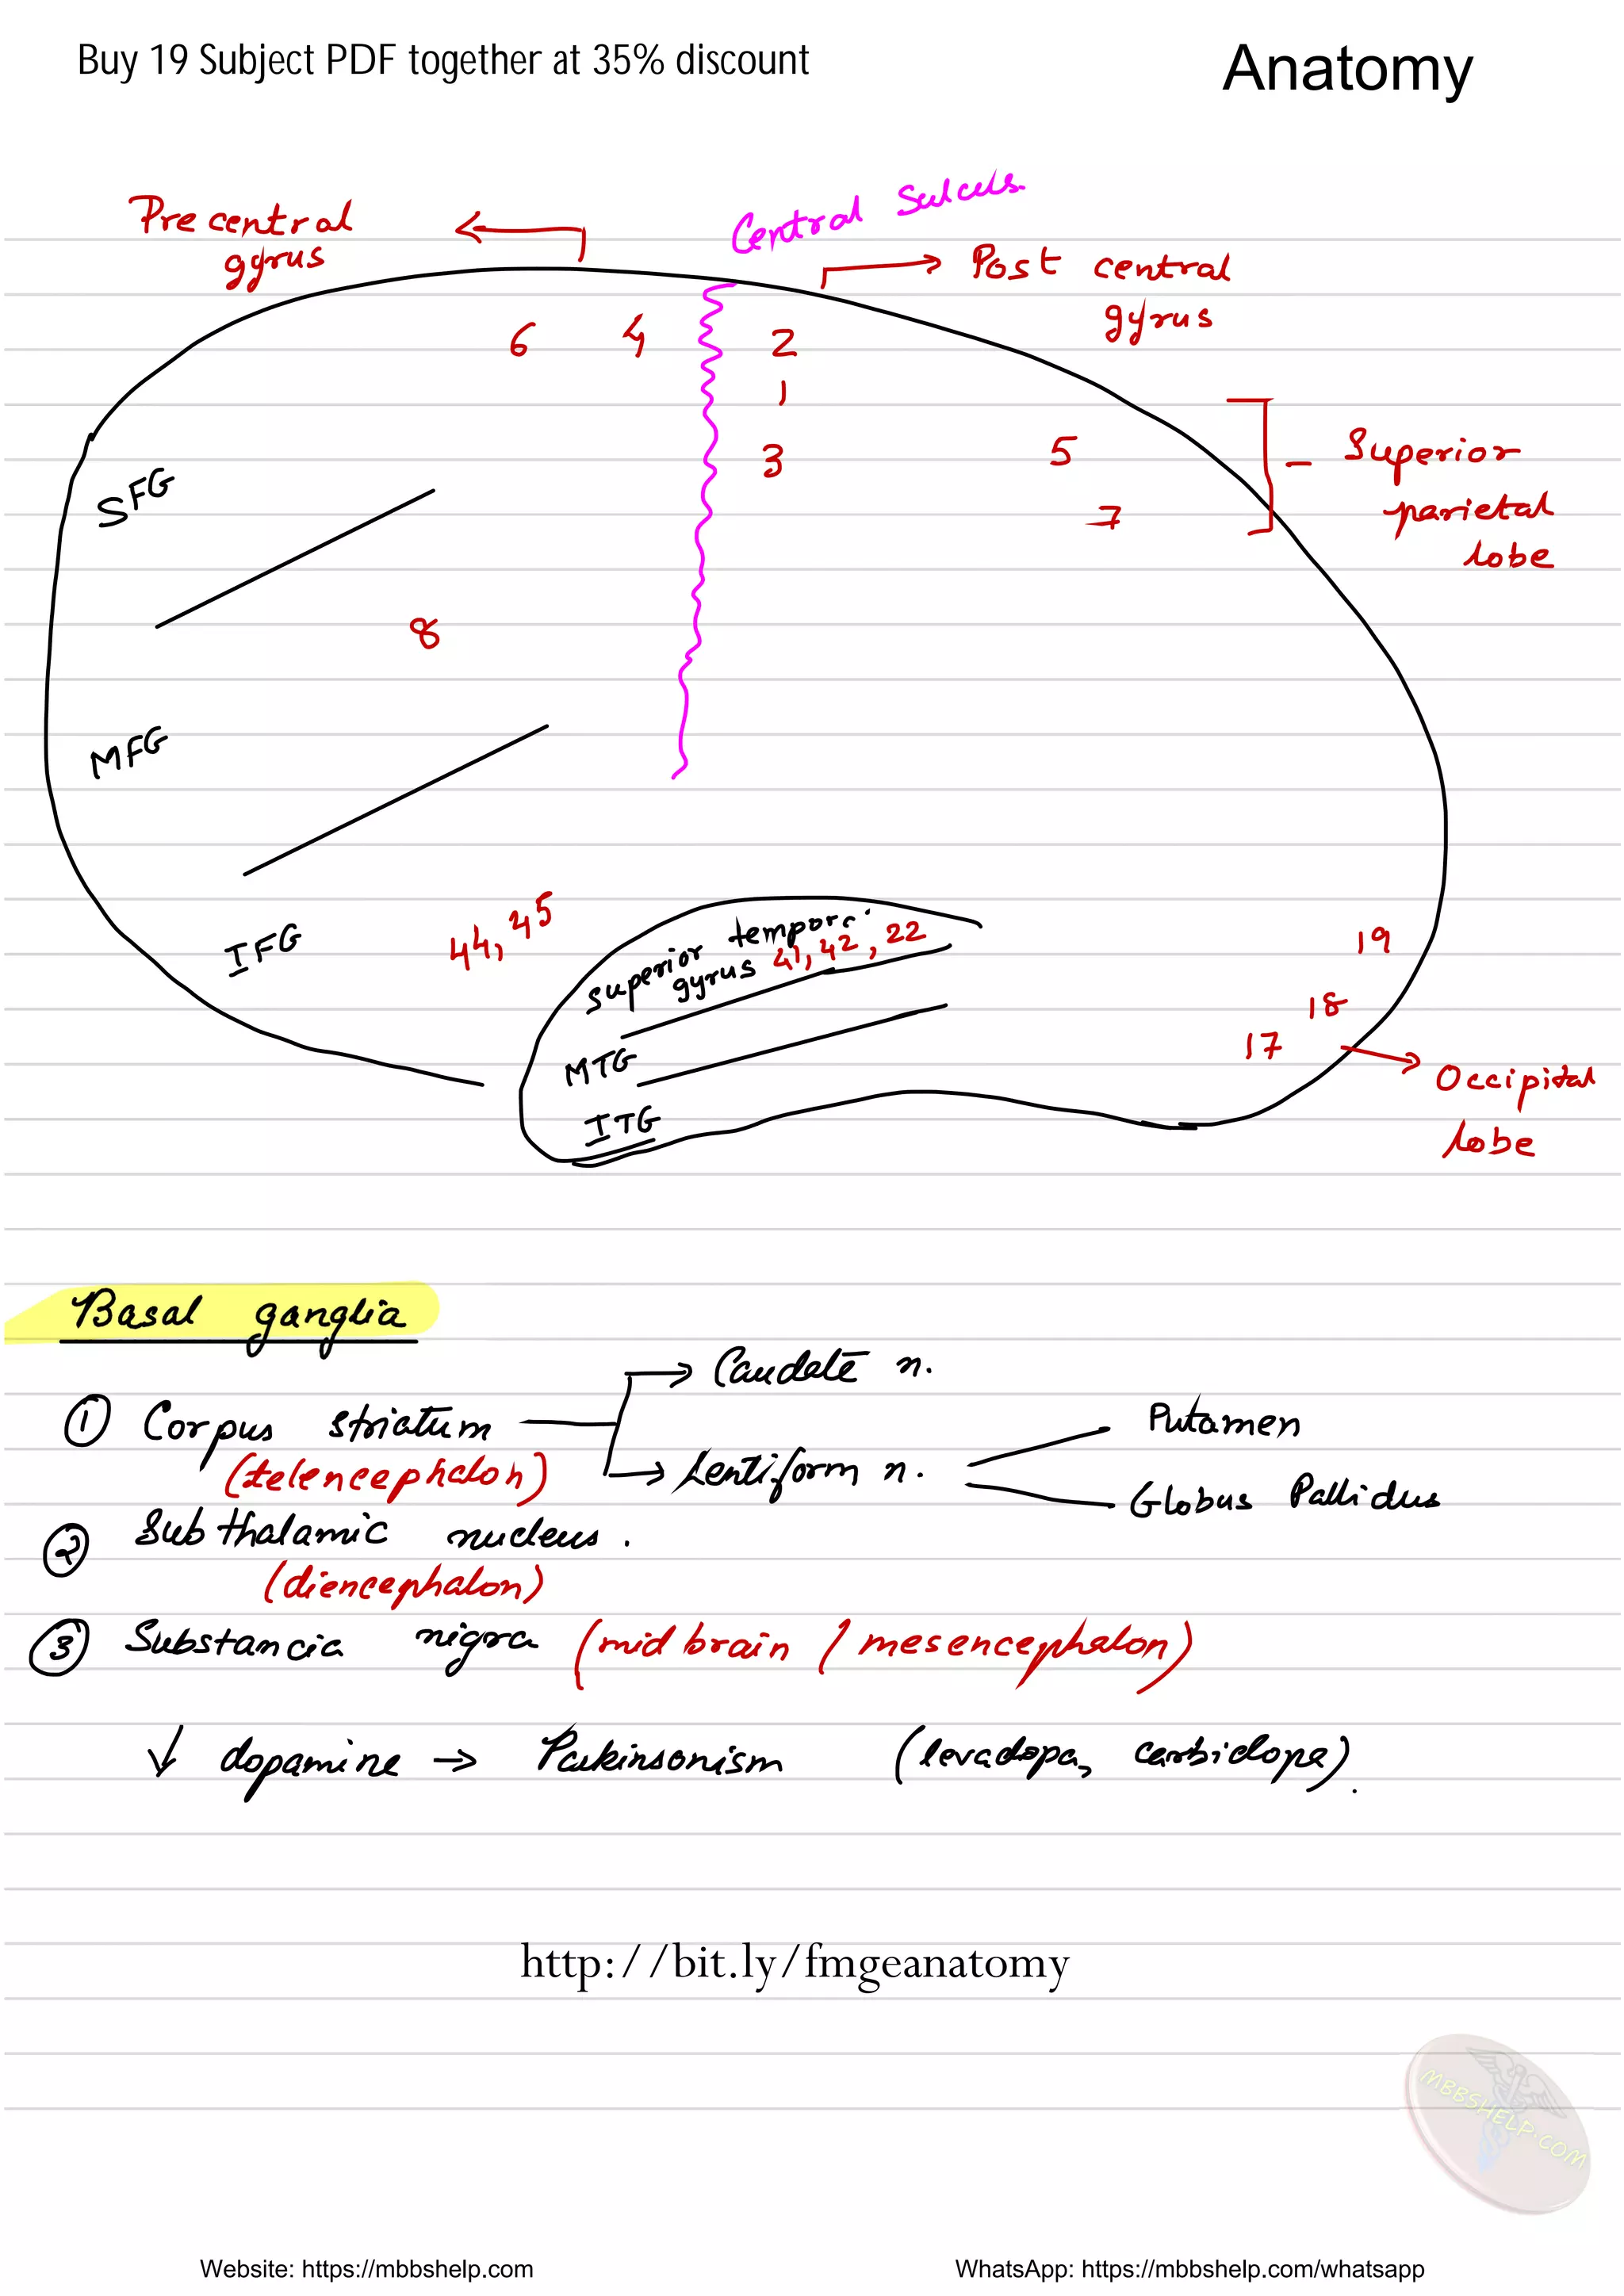 Buy 19 Subject PDF together at 35% discount
Anatomy
Precentral
gyrus
Central Sulcus
Post central
gyrus
6 4 2
1
3 5
7
Superior
parietal
lobe
SFG
8
MFG
IFG
44, 45
superior tempora
gyrus 41, 42, 22
MTG
ITG
19
18
17
Occipital
lobe
Basal ganglia
① Corpus striatum
(telencephalon)
Caudate n.
Lentiform n.
Putamen
Globus Pallidus
② Subthalamic nucleus.
(diencephalon)
③ Substancia nigra (midbrain / mesencephalon)
↓ dopamine → Parkinsonism (levadopa, carbidopa).
http://bit.ly/fmgeanatomy
MBBSHELP.COM
Website: https://mbbshelp.com
WhatsApp: https://mbbshelp.com/whatsapp